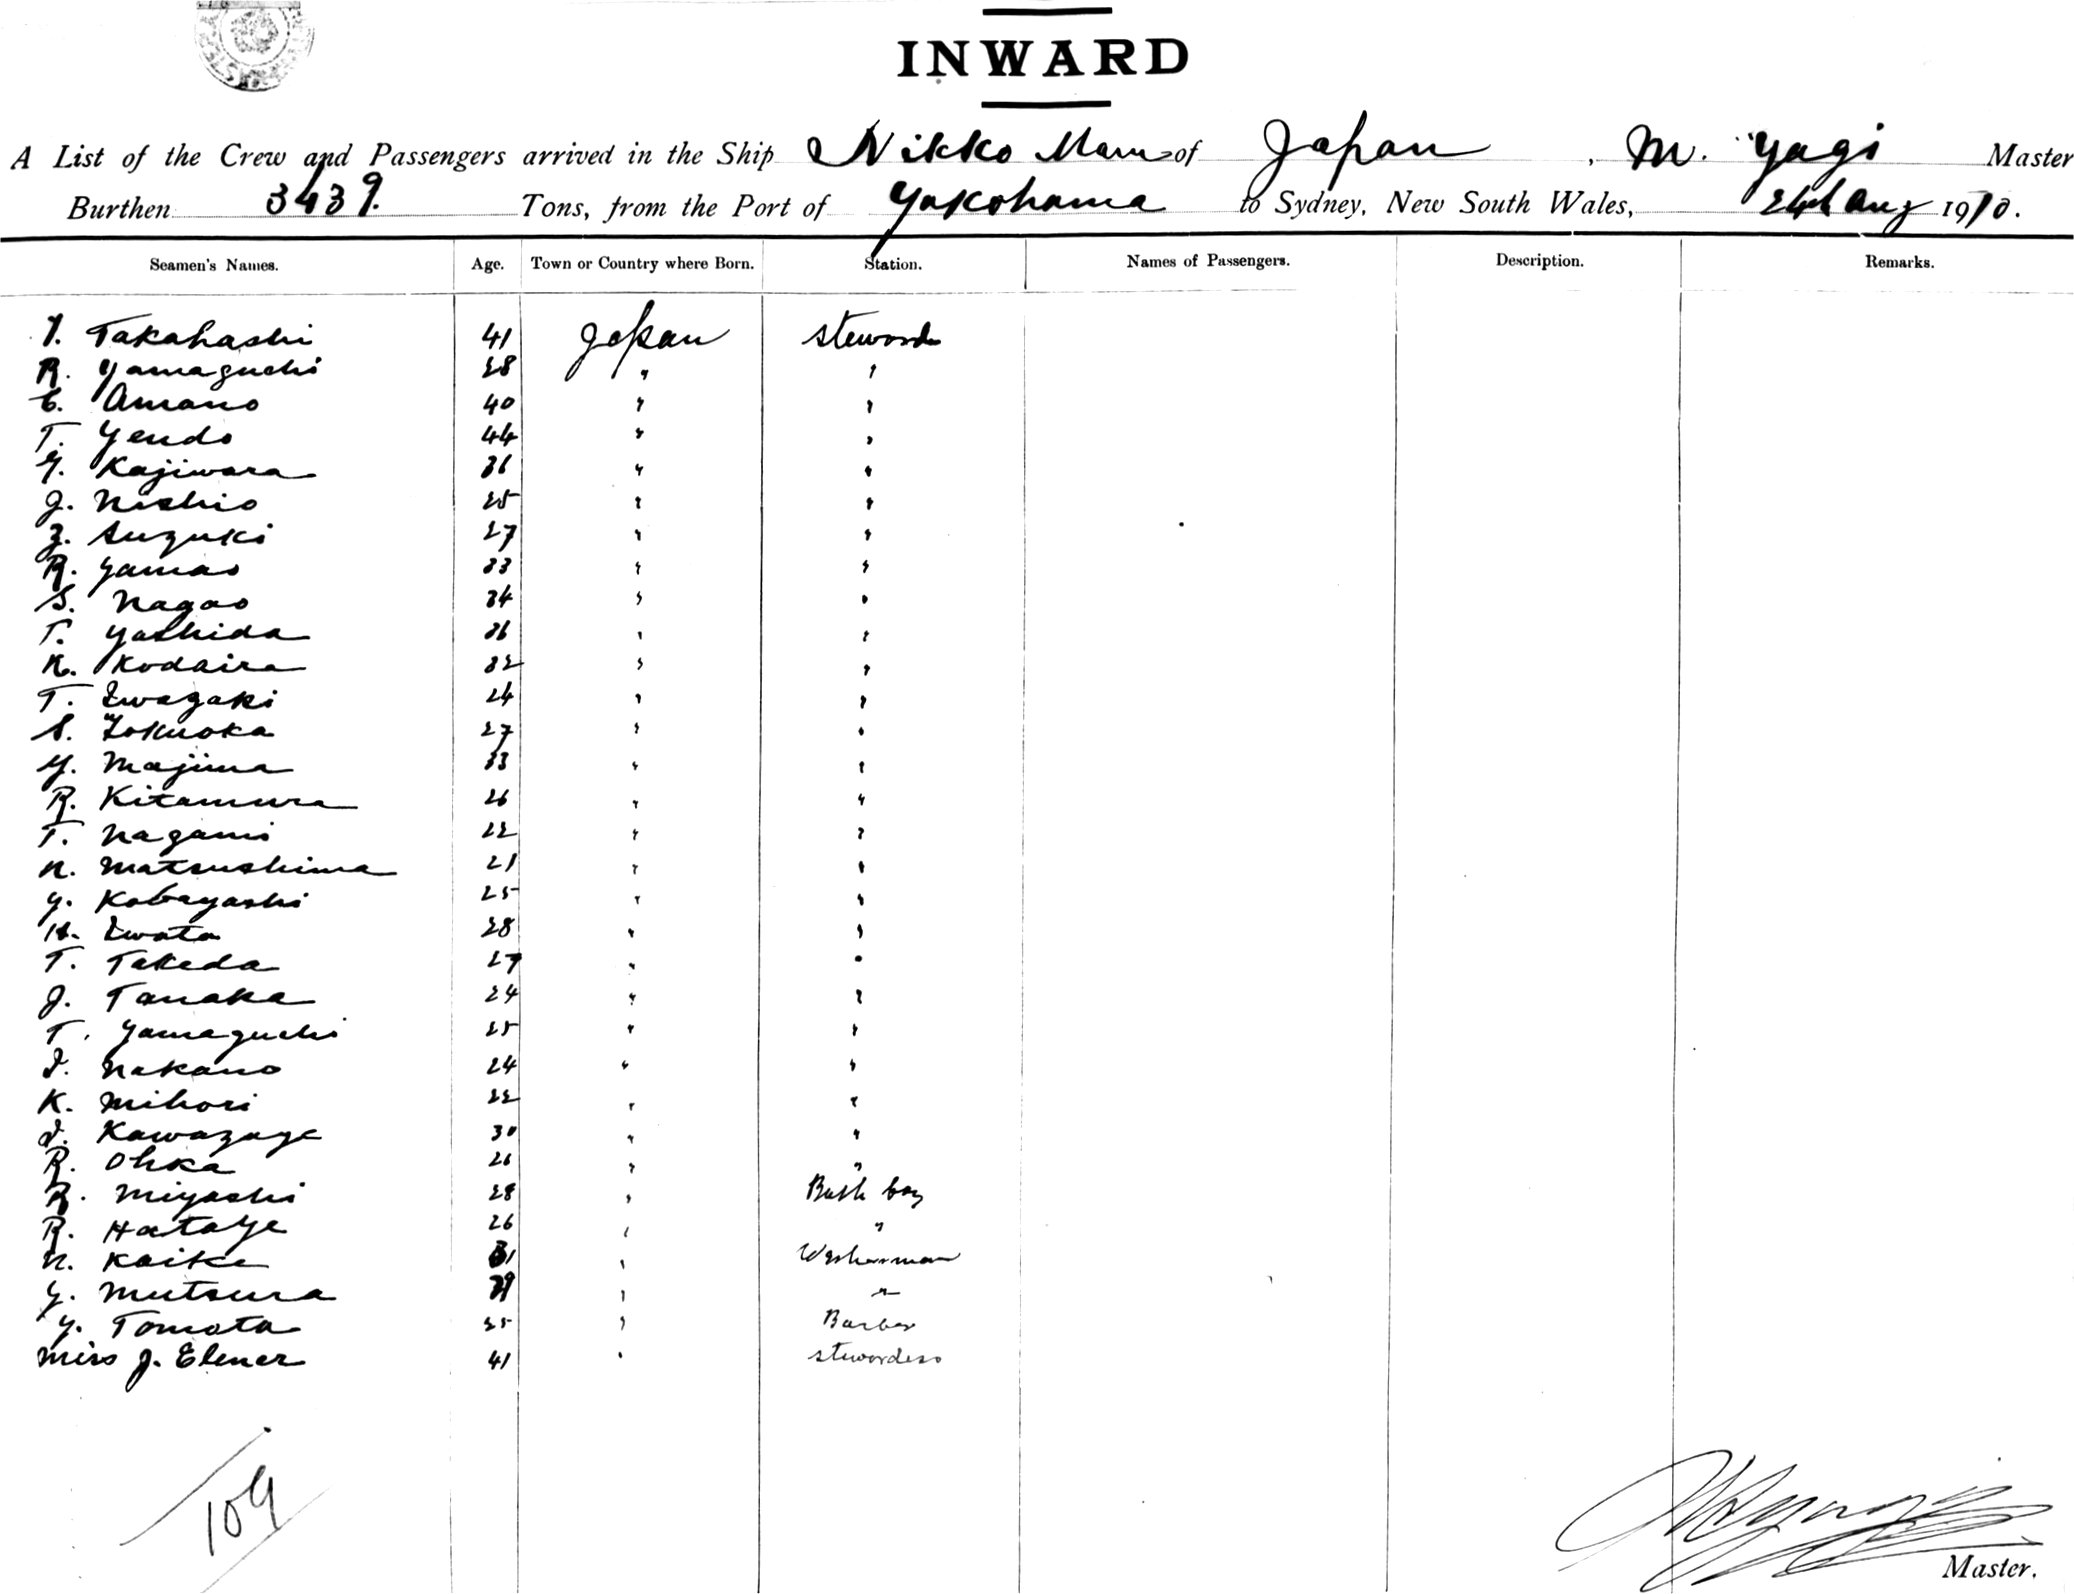 INWARD
A List of the Crew and Passengers arrived in the Ship Nikko Maru of Japan, M. Yagi Master
Burthen 3439. Tons, from the Port of Yokohama to Sydney, New South Wales, 24th Aug 1910.
Seamen's Names. Age. Town or Country where Born. Station. Names of Passengers. Description. Remarks.
Y. Takahashi 41 Japan steward
R. Yamaguchi 28 " "
C. Amano 40 " "
T. Yendo 44 " "
Y. Kajiwara 36 " "
J. Nishio 25 " "
Z. Suzuki 27 " "
R. Yamao 33 " "
S. Nagao 34 " "
T. Yoshida 36 " "
K. Kodaira 32 " "
T. Iwazaki 24 " "
S. Tokuoka 27 " "
Y. Majima 33 " "
R. Kitamura 26 " "
T. Nagami 22 " "
N. Matsushima 21 " "
Y. Kobayashi 25 " "
H. Iwata 28 " "
T. Takeda 27 " "
J. Tanaka 24 " "
T. Yamaguchi 25 " "
I. Nakano 24 " "
K. Mihori 22 " "
I. Kawazoye 30 " "
R. Ohka 26 " "
R. Miyoshi 28 " Bath boy
R. Hataye 26 " "
N. Koike 31 " Washerman
Y. Mutsura 39 " "
Y. Tomota 25 " Barber
Miss J. Elener 41 " stewardess
109
Master.